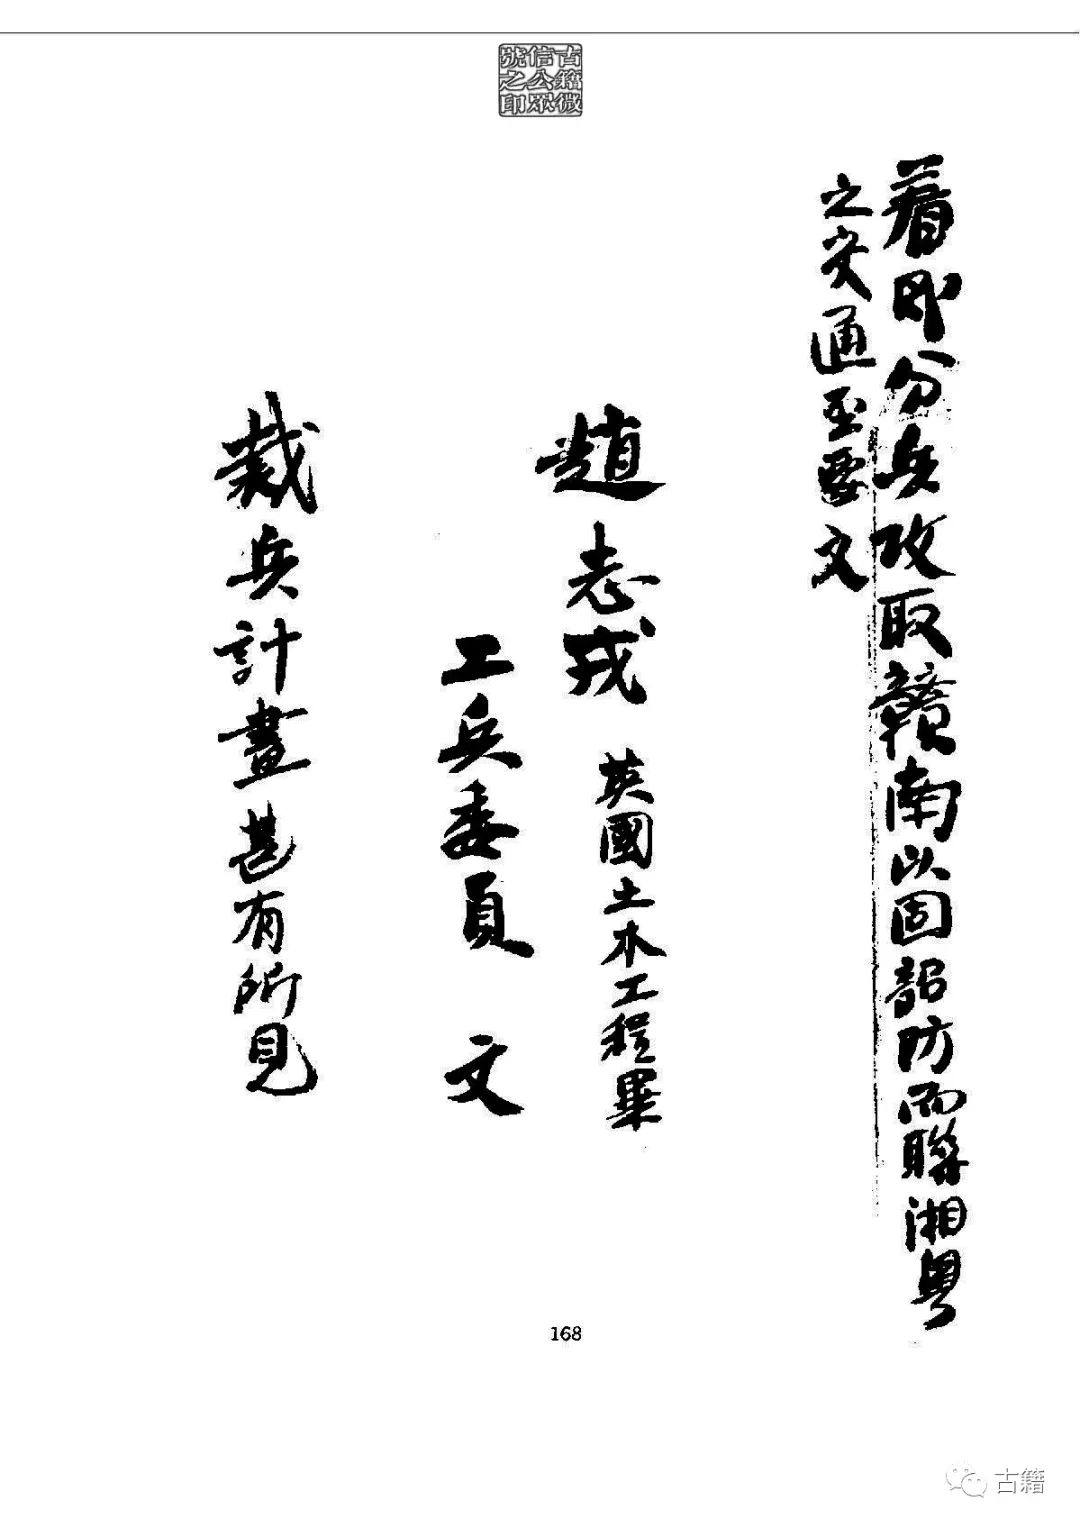 古籍微
信公眾
號之印
着即分兵攻取贛南以固韶防而聯湘粵
之交通至要文
趙志戎 英國土木工程畢
工兵委員 文
裁兵計畫甚有所見
168
古籍